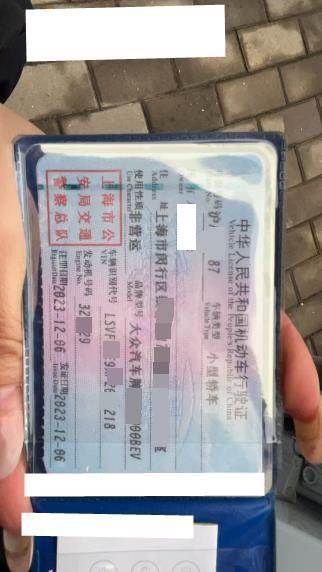 中华人民共和国机动车行驶证
Vehicle License of the People's Republic of China
号码 沪 87 车辆类型 小型轿车
Plate No. Vehicle Type
Owner
住 址 上海市闵行区
Address
使用性质 非营运 品牌型号 大众汽车牌 00BEV
Use Character Model
上海市公
安局交通
警察总队
车辆识别代号 LSVF 9 26 218
VIN
发动机号码 32 29
Engine No.
注册日期 2023-12-06 发证日期 2023-12-06
Register Date Issue Date